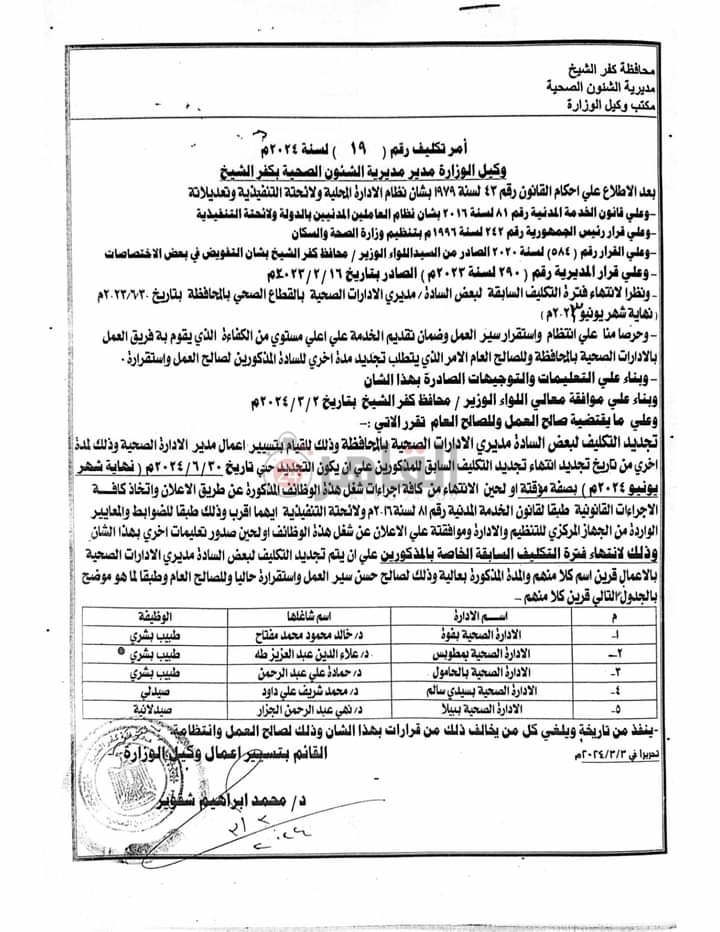 محافظة كفر الشيخ
مديرية الشئون الصحية
مكتب وكيل الوزارة
أمر تكليف رقم ( ١٩ ) لسنة ٢٠٢٤م
وكيل الوزارة مدير مديرية الشئون الصحية بكفر الشيخ
بعد الاطلاع علي احكام القانون رقم ٤٣ لسنة ١٩٧٩ بشان نظام الادارة المحلية ولائحتة التنفيذية وتعديلاتة
–وعلي قانون الخدمة المدنية رقم ٨١ لسنة ٢٠١٦ بشان نظام العاملين المدنيين بالدولة ولائحتة التنفيذية
–وعلي قرار رئيس الجمهورية رقم ٢٤٢ لسنة ١٩٩٦م بتنظيم وزارة الصحة والسكان
–وعلي القرار رقم (٥٨٤) لسنة ٢٠٢٠ الصادر من السيداللواء الوزير / محافظ كفر الشيخ بشان التفويض في بعض الاختصاصات
–وعلي قرار المديرية رقم ( ٢٩٠ لسنة ٢٠٢٣م ) الصادر بتاريخ ٢٠٢٣/٢/١٦م
–ونظرا لانتهاء فترة التكليف السابقة لبعض السادة/ مديري الادارات الصحية بالقطاع الصحي بالمحافظة بتاريخ ٢٠٢٣/٦/٣٠م
( نهاية شهر يونيو ٢٠٢٣م )
–وحرصا منا علي انتظام واستقرار سير العمل وضمان تقديم الخدمة علي اعلي مستوي من الكفاءة الذي يقوم به فريق العمل
بالادارات الصحية بالمحافظة وللصالح العام الامر الذي يتطلب تجديد مدة اخري للسادة المذكورين لصالح العمل واستقرارة ٠
– وبناء علي التعليمات والتوجيهات الصادرة بهذا الشان
وبناء علي موافقة معالي اللواء الوزير / محافظ كفر الشيخ بتاريخ ٢٠٢٤/٣/٢م
وعلي ما يقتضية صالح العمل وللصالح العام تقرر الاتي :–
تجديد التكليف لبعض السادة مديري الادارات الصحية بالمحافظة وذلك للقيام بتسيير اعمال مدير الادارة الصحية وذلك لمدة
اخري من تاريخ تجديد انتهاء تجديد التكليف السابق للمذكورين علي ان يكون التجديد حتي تاريخ ٢٠٢٤/٦/٣٠م ( نهاية شهر
يونيو ٢٠٢٤م ) بصفة مؤقتة او لحين الانتهاء من كافة اجراءات شغل هذة الوظائف المذكورة عن طريق الاعلان واتخاذ كافة
الاجراءات القانونية طبقا لقانون الخدمة المدنية رقم ٨١ لسنة٢٠١٦م ولائحتة التنفيذية ايهما اقرب وذلك طبقا للضوابط والمعايير
الواردة من الجهاز المركزي للتنظيم والادارة وموافقتة علي الاعلان عن شغل هذة الوظائف اولحين صدور تعليمات اخري بهذا الشان
وذلك لانتهاء فترة التكليف السابقة الخاصة بالمذكورين علي ان يتم تجديد التكليف لبعض السادة مديري الادارات الصحية
بالاعمال قرين اسم كلا منهم والمدة المذكورة بعالية وذلك لصالح حسن سير العمل واستقرارة حاليا وللصالح العام وطبقا لما هو موضح
بالجدول التالي قرين كلا منهم –
م اسم الادارة اسم شاغلها الوظيفة
١– الادارة الصحية بفوة د/ خالد محمود محمد مفتاح طبيب بشري
٢– الادارة الصحية بمطوبس د/ علاء الدين عبد العزيز طه طبيب بشري
٣– الادارة الصحية بالحامول د/ حمادة علي عبد الرحمن طبيب بشري
٤– الادارة الصحية بسيدي سالم د/ محمد شريف علي داود صيدلي
٥– الادارة الصحية ببيلا د/ نهي عبد الرحمن الجزار صيدلانية
–ينفذ من تاريخة ويلغي كل من يخالف ذلك من قرارات بهذا الشان وذلك لصالح العمل وانتظامة
تحريرا في ٢٠٢٤/٣/٣م
القائم بتسيير اعمال وكيل الوزارة
د/ محمد ابراهيم شقوير
٣/٣
٢٠٢٤
القاهرة